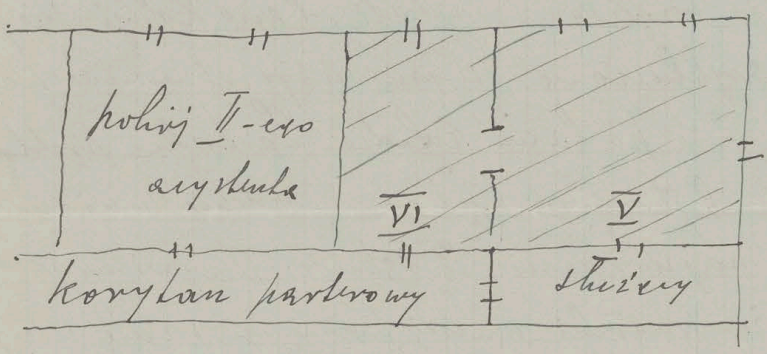 pokój II-ego
asystenta
VI
V
korytarz parterowy
służący